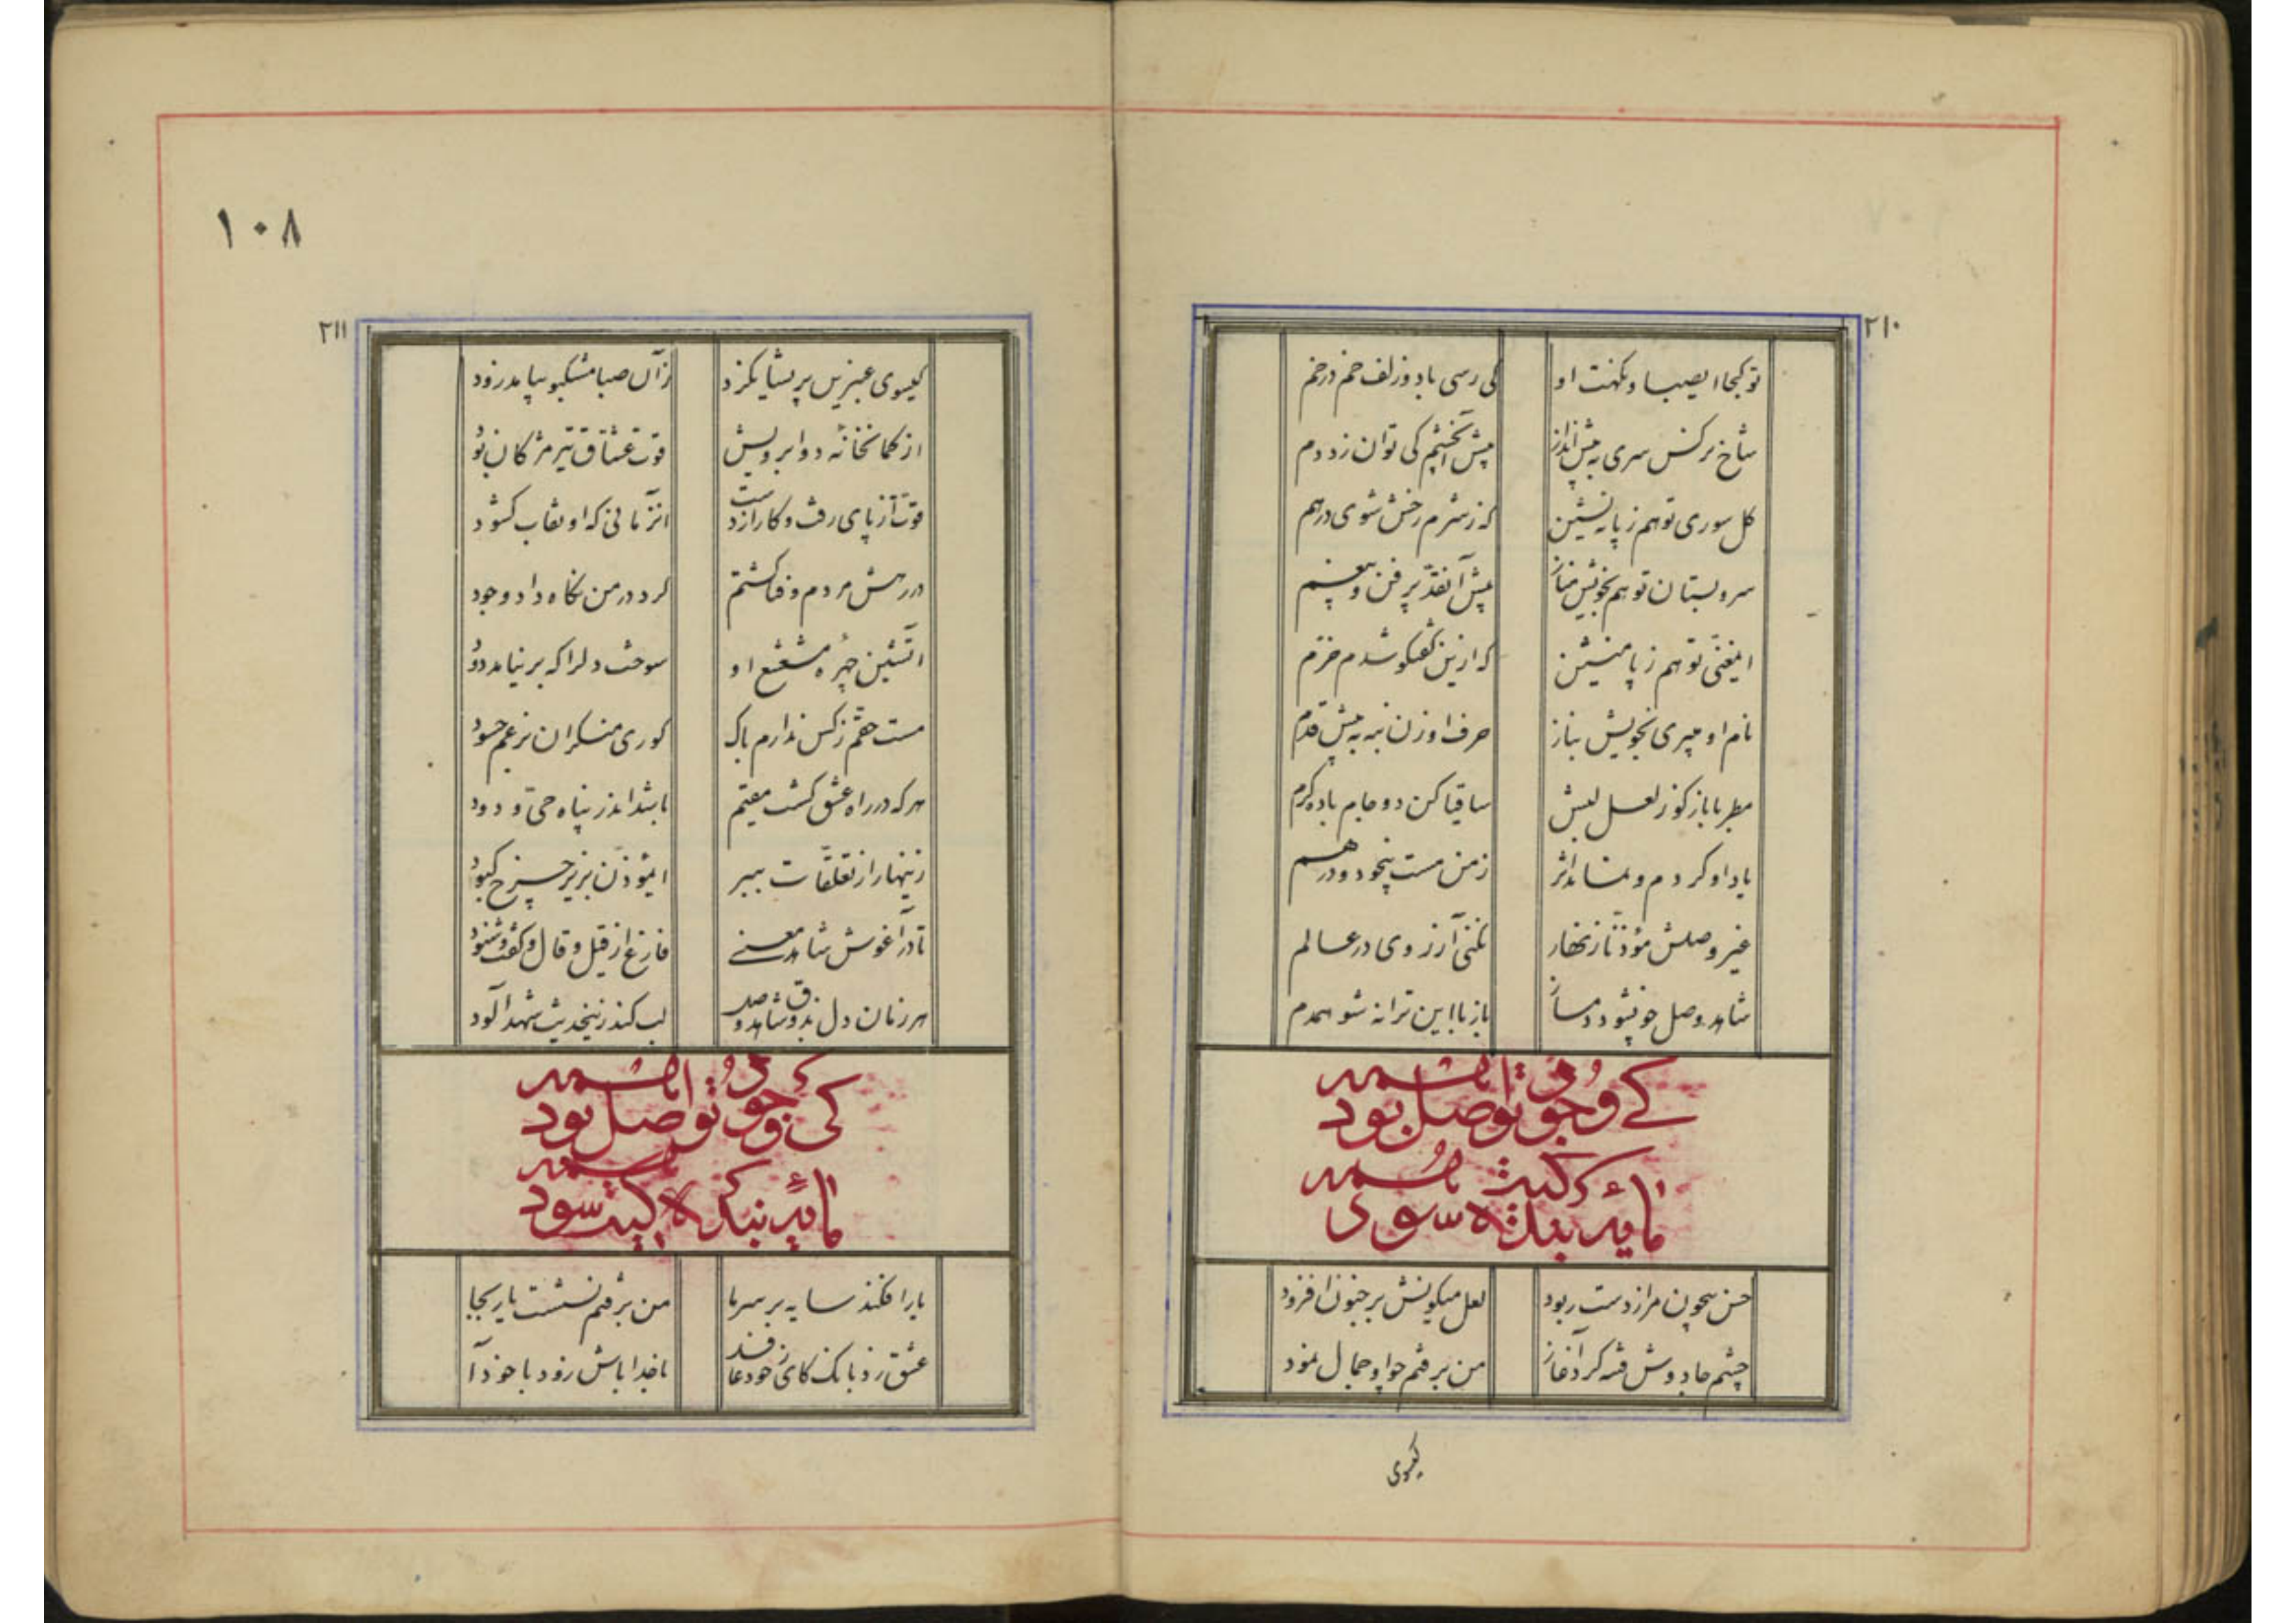 ۲۱۰
تو کجا ایصبا و نکهت او
کی رسی باد و زلف خم در خم
شاخ نرکس سری به پیش انداز
پیش آنچشم کی توان زد دم
کل سوری تو هم ز پا بنشین
که ز شرم رخش شوی درهم
سرو بستان تو هم بخویش مناز
پیش آنقد پر فن و پرخم
ایمغنی تو هم ز پا منشین
که ازین گفتگو شدم خرم
نام او میبری بخویش بناز
حرف او زن بنه به پیش قدم
مطربا باز کو ز لعل لبش
ساقیا کن دو جام باده کرم
یاد او کردم و نماند اثر
ز من مست بیخود و درهم
غیر وصلش مؤذنا زنهار
نکنی آرزوی در عالم
شاهد وصل چو شود دمساز
باز با این ترانه شو همدم
حسن بیچون مرا ز دست ربود
لعل میکونش بر جنون افزود
چشم جادوش فتنه کرد آغاز
من برفتم چو او جمال نمود
کیسوی
۱۰۸
۲۱۱
کیسوی عنبرین پریشان کرد
زآن صبا مشکبو بیامد زود
از کمانخانه دو ابرویش
قوت عشاق تیر مژکان بود
قوت از پای رفت و کار از دست
آنزمانی که او نقاب کشود
در رهش مردم و فنا کشتم
کرد در من نکاه و داد وجود
آتشین چهره مشعشع او
سوخت دلرا که بر نیامد دود
مست حقم ز کس ندارم باک
کوری منکران بزعم حسود
هر که در راه عشق کشت مقیم
باشد اندر پناه حی ودود
زینهار از تعلقات ببر
ایمؤذن بزیر چرخ کبود
تا در آغوش شاهد معنی
فارغ از قیل و قال و گفت و شنود
هر زمان دل بذوق شاهد وصد
لب کند زینحدیث شهد آلود
یار افکند سایه بر سر ما
من برفتم نشست یار بجا
عشق زد بانک کای ز خود عارف
با خدا باش زود با خود آ